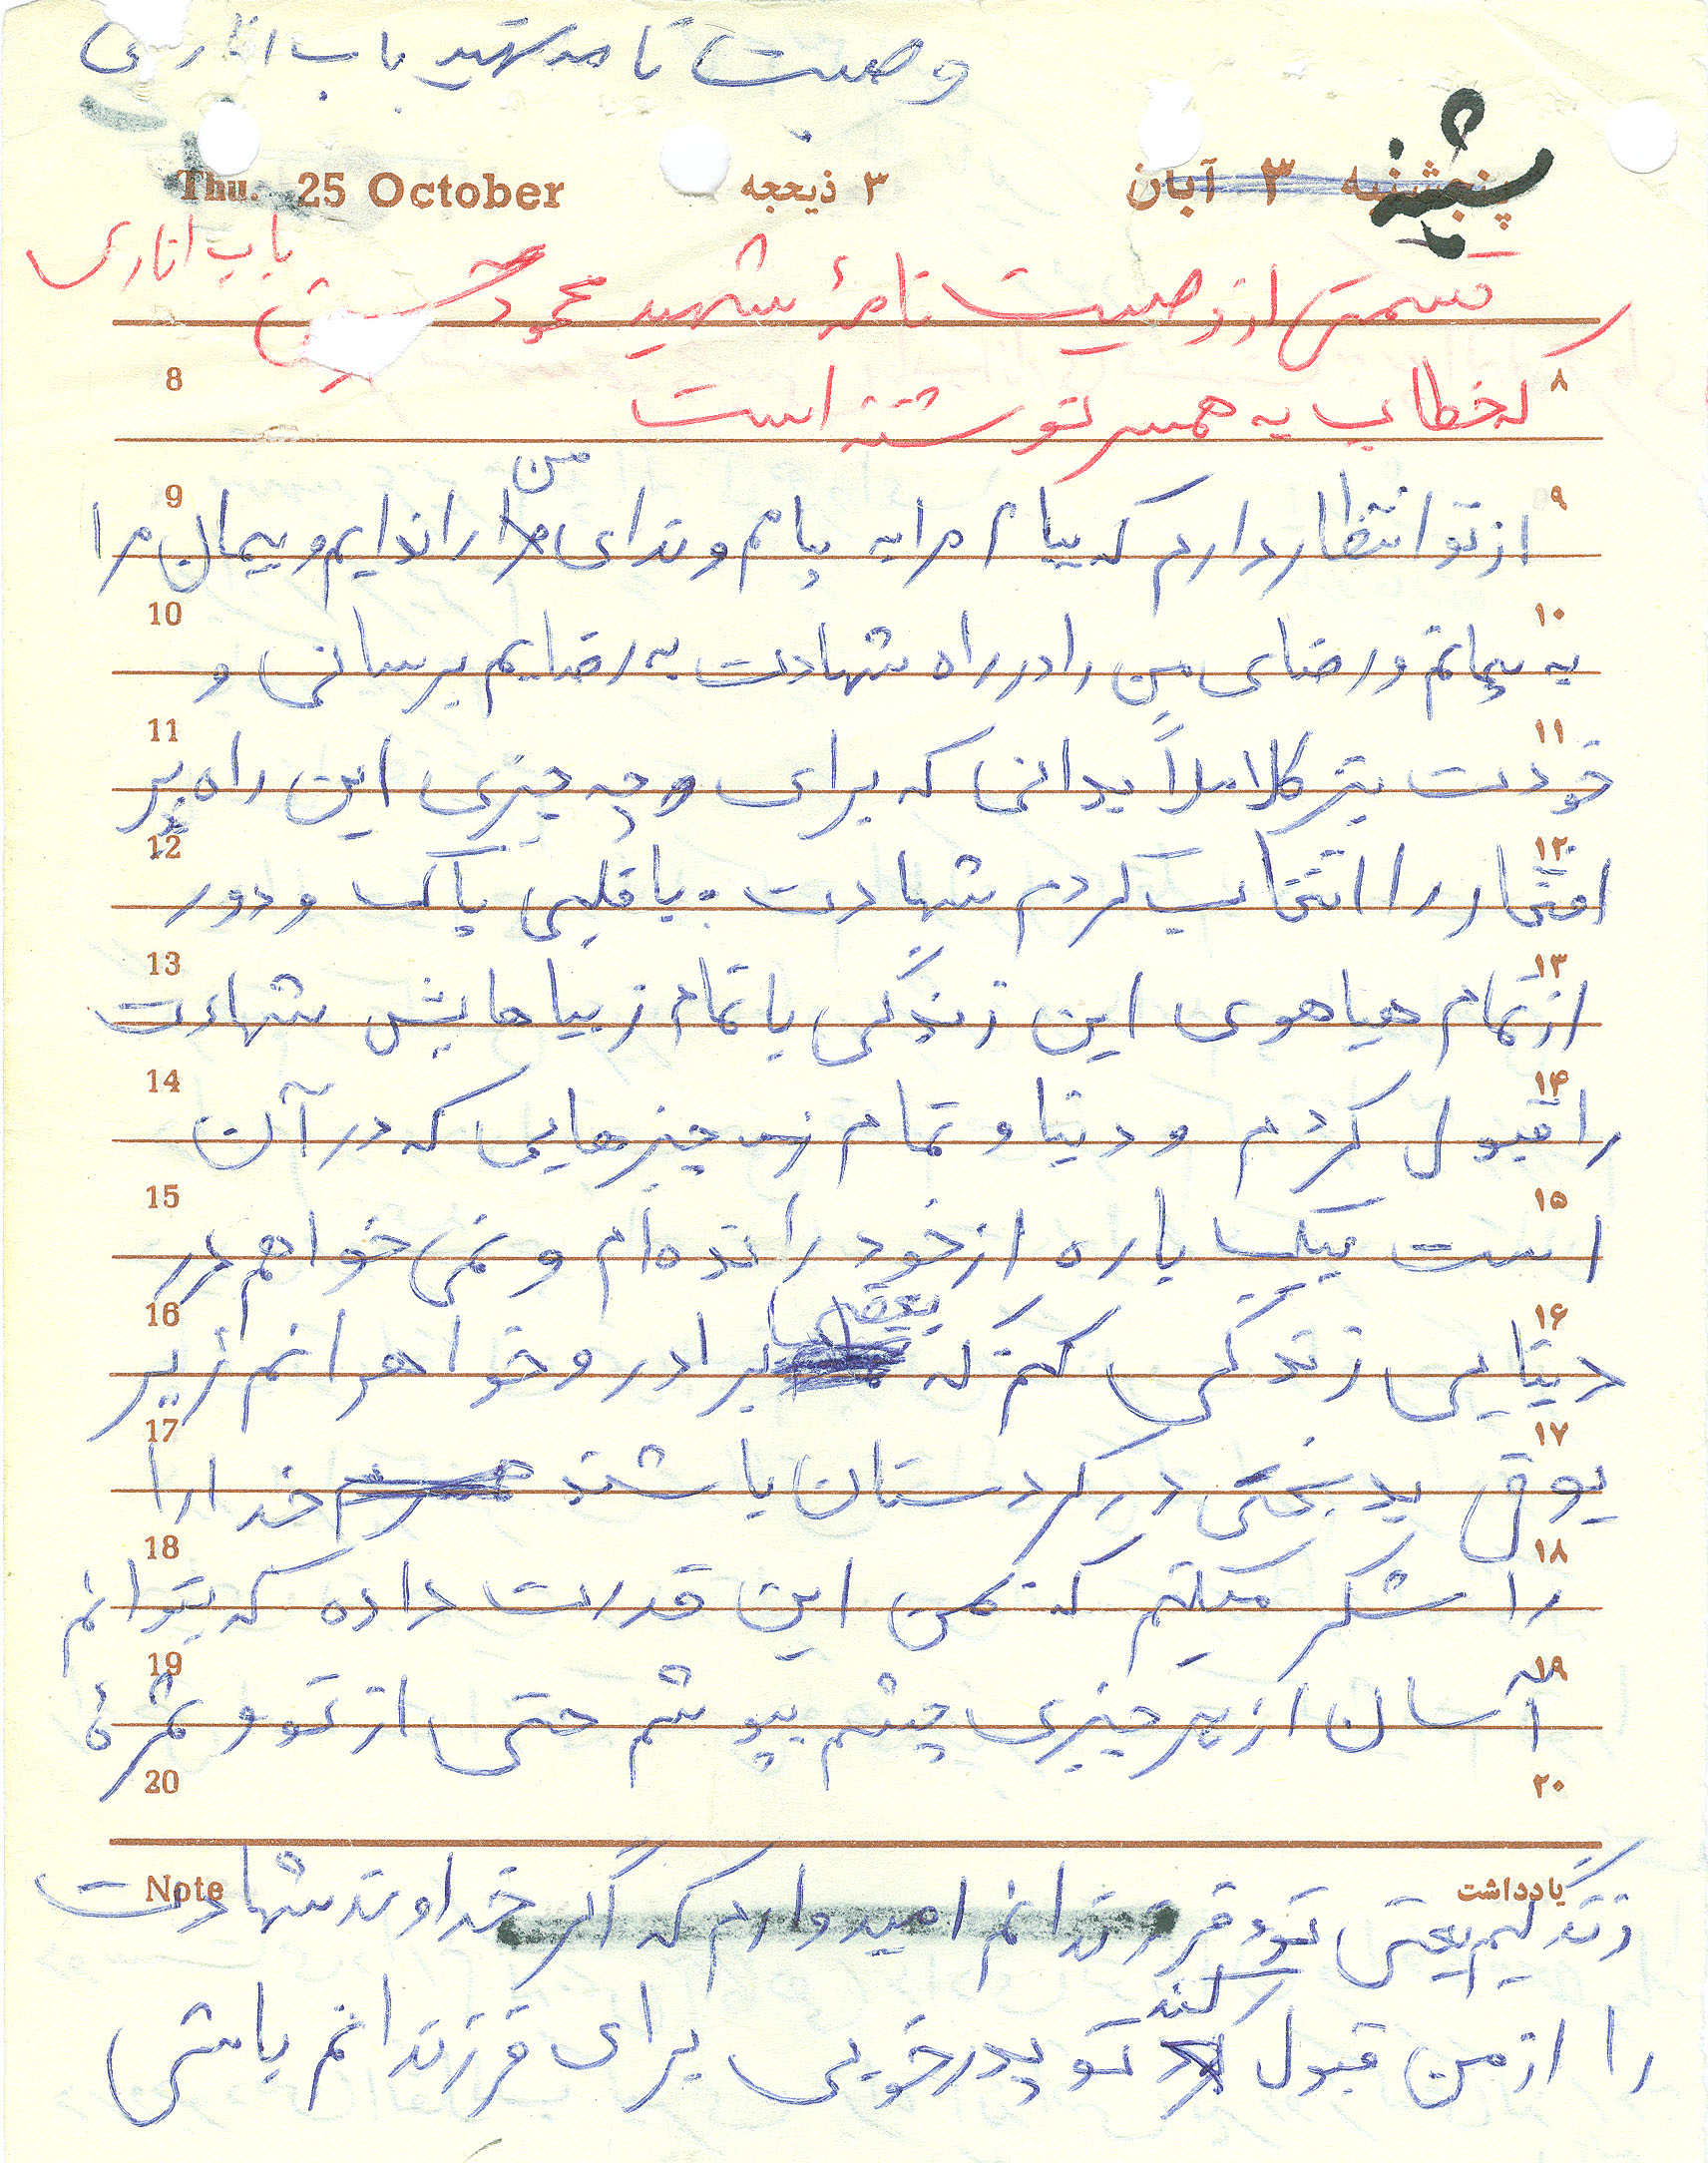 وصیت نامه شهید باب اناری
Thu. 25 October ۳ ذیحجه پنجشنبه ۳ آبان
باب اناری
قسمتی از وصیت نامهٔ شهید محمود
8 ۸
که خطاب به همسر نوشته است
من
9 ۹
از تو انتظار دارم که پیام مرا به پیامم و ندای مرا را ندایم و پیمان مرا
10 ۱۰
به پیمانم و رضای من را در راه شهادت به رضایم برسانی و
11 ۱۱
خودت نیز کلاملاً بدانی که برای چه چیزی این راه پر
12 ۱۲
افتخار را انتخاب کردم شهادت. با قلبی پاک و دور
13 ۱۳
از تمام هیاهوی این زندگی با تمام زیباهایش شهادت
14 ۱۴
را قبول کردم و دنیا و تمام چیزهایی که در آن
15 ۱۵
است یکباره از خود رانده‌ام و نمی خواهم در
16 ۱۶
دنیایی زندگی کنم که بعضی برادر و خواهرانم زیر
17 ۱۷
یوق بدبختی در کردستان باشند خدا را
18 ۱۸
را شکر میکنم که بمن این قدرت داده که بتوانم
19 ۱۹
آسان از هر چیزی چشم بپوشم حتی از تو و ثمرهٔ
20 ۲۰
Note یادداشت
زندگیم یعنی تو و فرزندانم امیدوارم که اگر خداوند شهادت
کند
را از من قبول تو پدر خوبی برای فرزندانم باشی